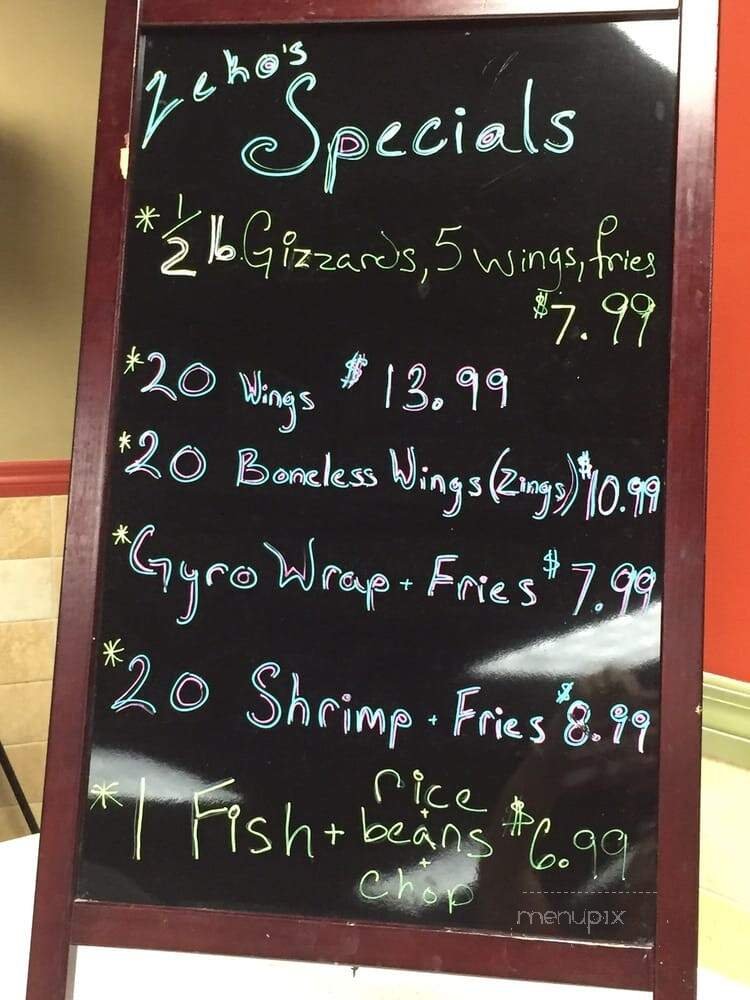 Zeko's
Specials
* 1/2 lb. Gizzards, 5 wings, fries
$7.99
* 20 Wings $13.99
* 20 Boneless Wings (Zings) $10.99
* Gyro Wrap + Fries $7.99
* 20 Shrimp + Fries $8.99
* 1 Fish + rice + beans + chop $6.99
menupix